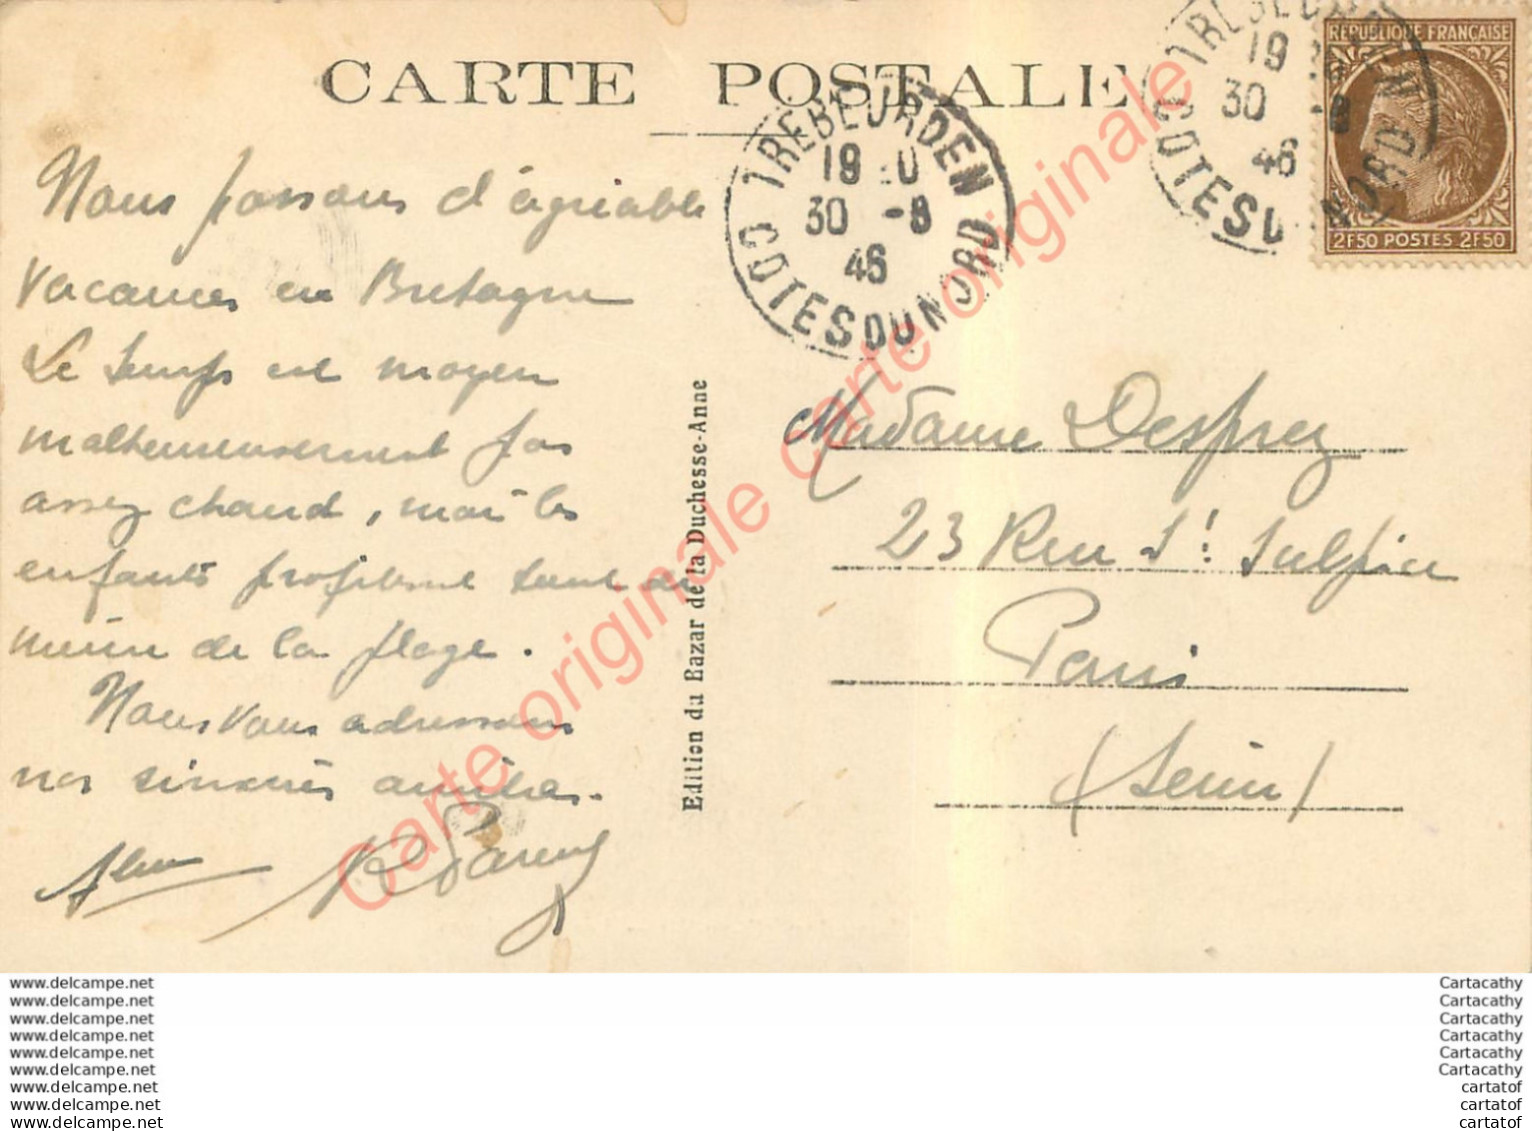 CARTE POSTALE
TREBEURDEN
19
30 -8
46
COTES DU NORD
TREBEURDEN
19
30 -8
46
COTES DU NORD
RÉPUBLIQUE FRANÇAISE
2F50 POSTES 2F50
Nous passons d'agréable
vacances en Bretagne
Le temps est moyen
malheureusement pas
assez chaud, mais les
enfants profitent tout de
même de la plage.
Nous vous adressons
nos sincères amitiés.
Edition du Bazar de la Duchesse-Anne
Madame Desprez
23 Rue St Sulpice
Paris
(Seine)
Carte originale Carte originale Carte originale Carte originale
www.delcampe.net
www.delcampe.net
www.delcampe.net
www.delcampe.net
www.delcampe.net
www.delcampe.net
www.delcampe.net
www.delcampe.net
www.delcampe.net
Cartacathy
Cartacathy
Cartacathy
Cartacathy
Cartacathy
Cartacathy
cartatof
cartatof
cartatof